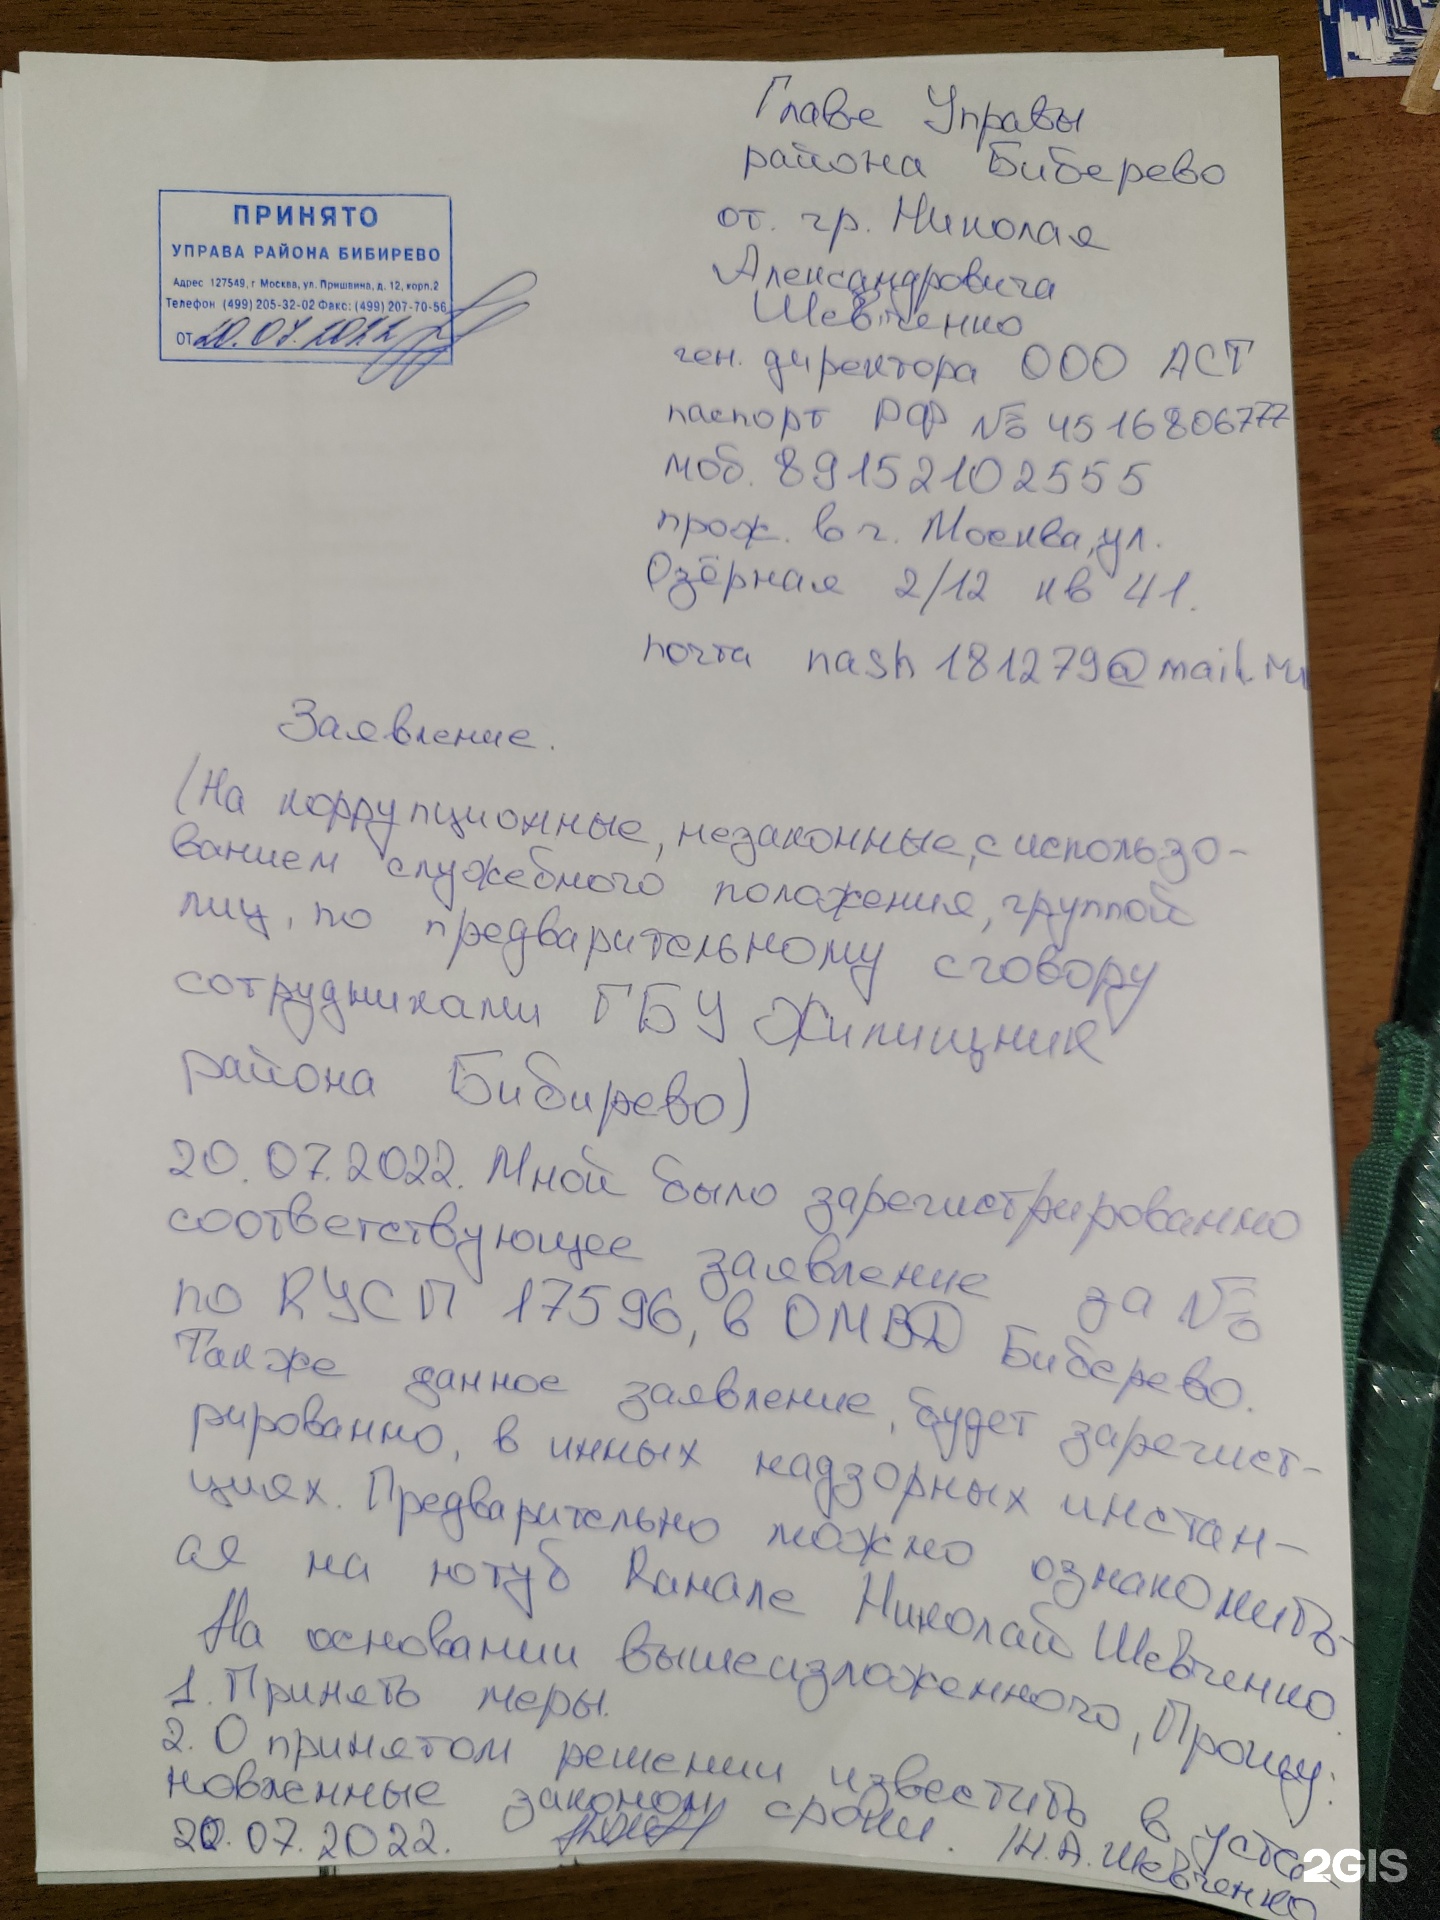 Главе Управы
района Биберево
от. гр. Николая
Александровича
Шевченко
ген. директора ООО АСТ
паспорт РФ № 4516806777
моб. 89152102555
прож. в г. Москва, ул.
Озёрная 2/12 кв 41.
почта nash181279@mail.ru
ПРИНЯТО
УПРАВА РАЙОНА БИБИРЕВО
Адрес 127549, г Москва, ул. Пришвина, д. 12, корп.2
Телефон (499) 205-32-02 Факс: (499) 207-70-56
от 20.07.2022
Заявление.
(На коррупционные, незаконные, с использо-
ванием служебного положения, группой
лиц, по предварительному сговору
сотрудниками ГБУ Жилищник
района Бибирево)
20.07.2022. Мной было зарегистрированно
соответствующее заявление за №
по КУСП 17596, в ОМВД Биберево.
Также данное заявление, будет зарегист-
рированно, в инных надзорных инстан-
циях. Предварительно можно ознакомить-
ся на ютуб канале Николай Шевченко.
На основании вышеизложенного, Прошу:
1. Принять меры.
2. О принятом решении известить в уста-
новленные законом сроки.
20.07.2022. /Н.А. Шевченко
2GIS